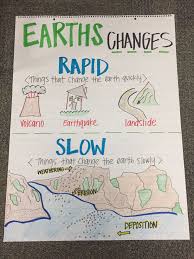 EARTHS CHANGES
RAPID
(Things that change the earth quickly)
Volcano Earthquake landslide
SLOW
(Things that change the earth slowly)
WEATHERING
EROSION
DEPOSITION